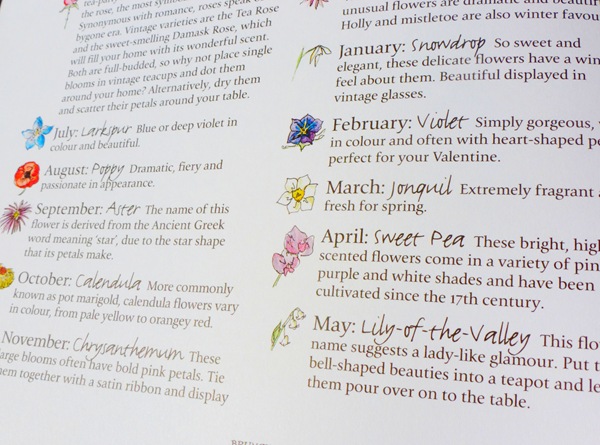 the rose, the most
Synonymous with romance, roses speak
bygone era. Vintage varieties are the Tea Rose
and the sweet-smelling Damask Rose, which
will fill your home with its wonderful scent.
Both are full-budded, so why not place single
blooms in vintage teacups and dot them
around your home? Alternatively, dry them
and scatter their petals around your table.
July: Larkspur Blue or deep violet in
colour and beautiful.
August: Poppy Dramatic, fiery and
passionate in appearance.
September: Aster The name of this
flower is derived from the Ancient Greek
word meaning 'star', due to the star shape
that its petals make.
October: Calendula More commonly
known as pot marigold, calendula flowers vary
in colour, from pale yellow to orangey red.
November: Chrysanthemum These
large blooms often have bold pink petals. Tie
them together with a satin ribbon and display
unusual flowers are dramatic and
Holly and mistletoe are also winter
January: Snowdrop So sweet and
elegant, these delicate flowers have a
feel about them. Beautiful displayed in
vintage glasses.
February: Violet Simply gorgeous,
in colour and often with heart-shaped
perfect for your Valentine.
March: Jonquil Extremely fragrant
fresh for spring.
April: Sweet Pea These bright,
scented flowers come in a variety of
purple and white shades and have been
cultivated since the 17th century.
May: Lily-of-the-Valley This
name suggests a lady-like glamour. Put
bell-shaped beauties into a teapot and
them pour over on to the table.